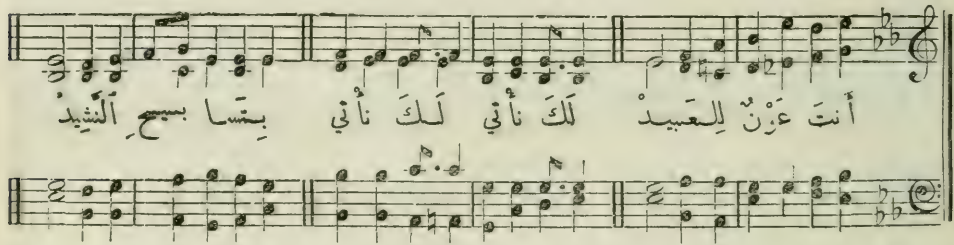 أَنتَ عَوْنٌ لِلـعَبيـدْ لَكَ نأْتي لَـكَ نأْتي بِتَسـا بسيحِ ٱلنَّشِيدْ